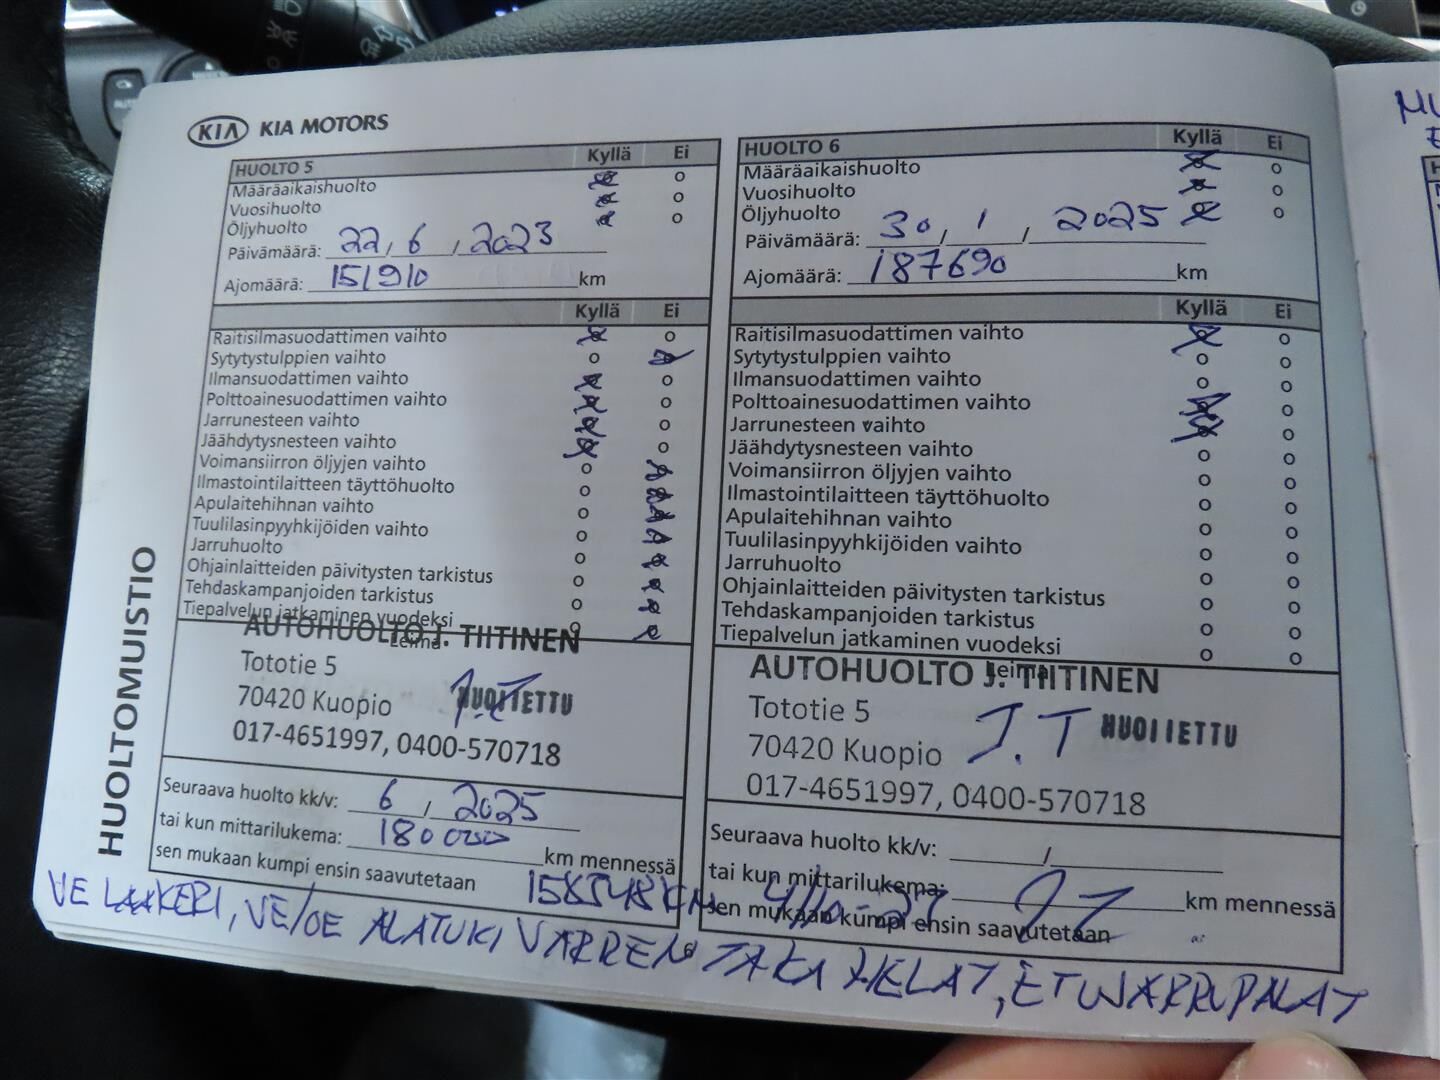 KIA KIA MOTORS
HUOLTO 5 Kyllä Ei
Määräaikaishuolto o
Vuosihuolto o
Öljyhuolto o
Päivämäärä: 22 / 6 / 2023
Ajomäärä: 151910 km
Kyllä Ei
Raitisilmasuodattimen vaihto o
Sytytystulppien vaihto o
Ilmansuodattimen vaihto o
Polttoainesuodattimen vaihto o
Jarrunesteen vaihto o
Jäähdytysnesteen vaihto o
Voimansiirron öljyjen vaihto o
Ilmastointilaitteen täyttöhuolto o
Apulaitehihnan vaihto o
Tuulilasinpyyhkijöiden vaihto o
Jarruhuolto o
Ohjainlaitteiden päivitysten tarkistus o
Tehdaskampanjoiden tarkistus o
Tiepalvelun jatkaminen vuodeksi o
Leima
AUTOHUOLTO J. TIITINEN
Tototie 5
70420 Kuopio HUOLLETTU
017-4651997, 0400-570718
Seuraava huolto kk/v: 6 / 2025
tai kun mittarilukema: 180000 km mennessä
sen mukaan kumpi ensin saavutetaan
HUOLTO 6 Kyllä Ei
Määräaikaishuolto o
Vuosihuolto o
Öljyhuolto o
Päivämäärä: 30 / 1 / 2025
Ajomäärä: 187690 km
Kyllä Ei
Raitisilmasuodattimen vaihto o
Sytytystulppien vaihto o o
Ilmansuodattimen vaihto o o
Polttoainesuodattimen vaihto o
Jarrunesteen vaihto o
Jäähdytysnesteen vaihto o o
Voimansiirron öljyjen vaihto o o
Ilmastointilaitteen täyttöhuolto o o
Apulaitehihnan vaihto o o
Tuulilasinpyyhkijöiden vaihto o o
Jarruhuolto o o
Ohjainlaitteiden päivitysten tarkistus o o
Tehdaskampanjoiden tarkistus o o
Tiepalvelun jatkaminen vuodeksi o o
Leima
AUTOHUOLTO J. TIITINEN
Tototie 5
70420 Kuopio J.T HUOLLETTU
017-4651997, 0400-570718
Seuraava huolto kk/v: /
tai kun mittarilukema: km mennessä
sen mukaan kumpi ensin saavutetaan
HUOLTOMUISTIO
158548 KM
VE LAAKERI, VE/OE ALATUKIVARREN TAKA HELAT, ETUJARRUPALAT